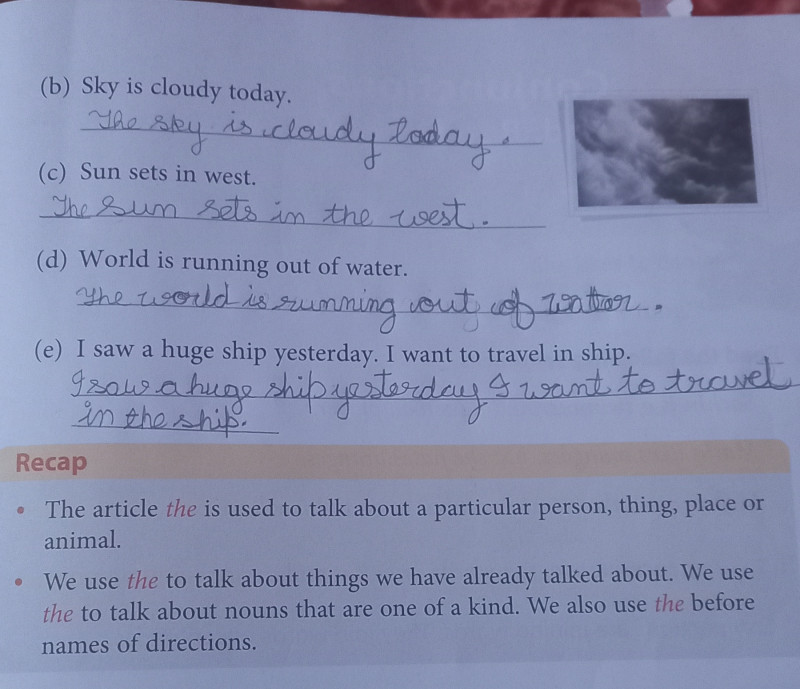 (b) Sky is cloudy today.
The sky is cloudy today.
(c) Sun sets in west.
The Sun sets in the west.
(d) World is running out of water.
The world is running out of watter.
(e) I saw a huge ship yesterday. I want to travel in ship.
I saw a huge ship yesterday I want to travel
in the ship.
Recap
• The article the is used to talk about a particular person, thing, place or
animal.
• We use the to talk about things we have already talked about. We use
the to talk about nouns that are one of a kind. We also use the before
names of directions.